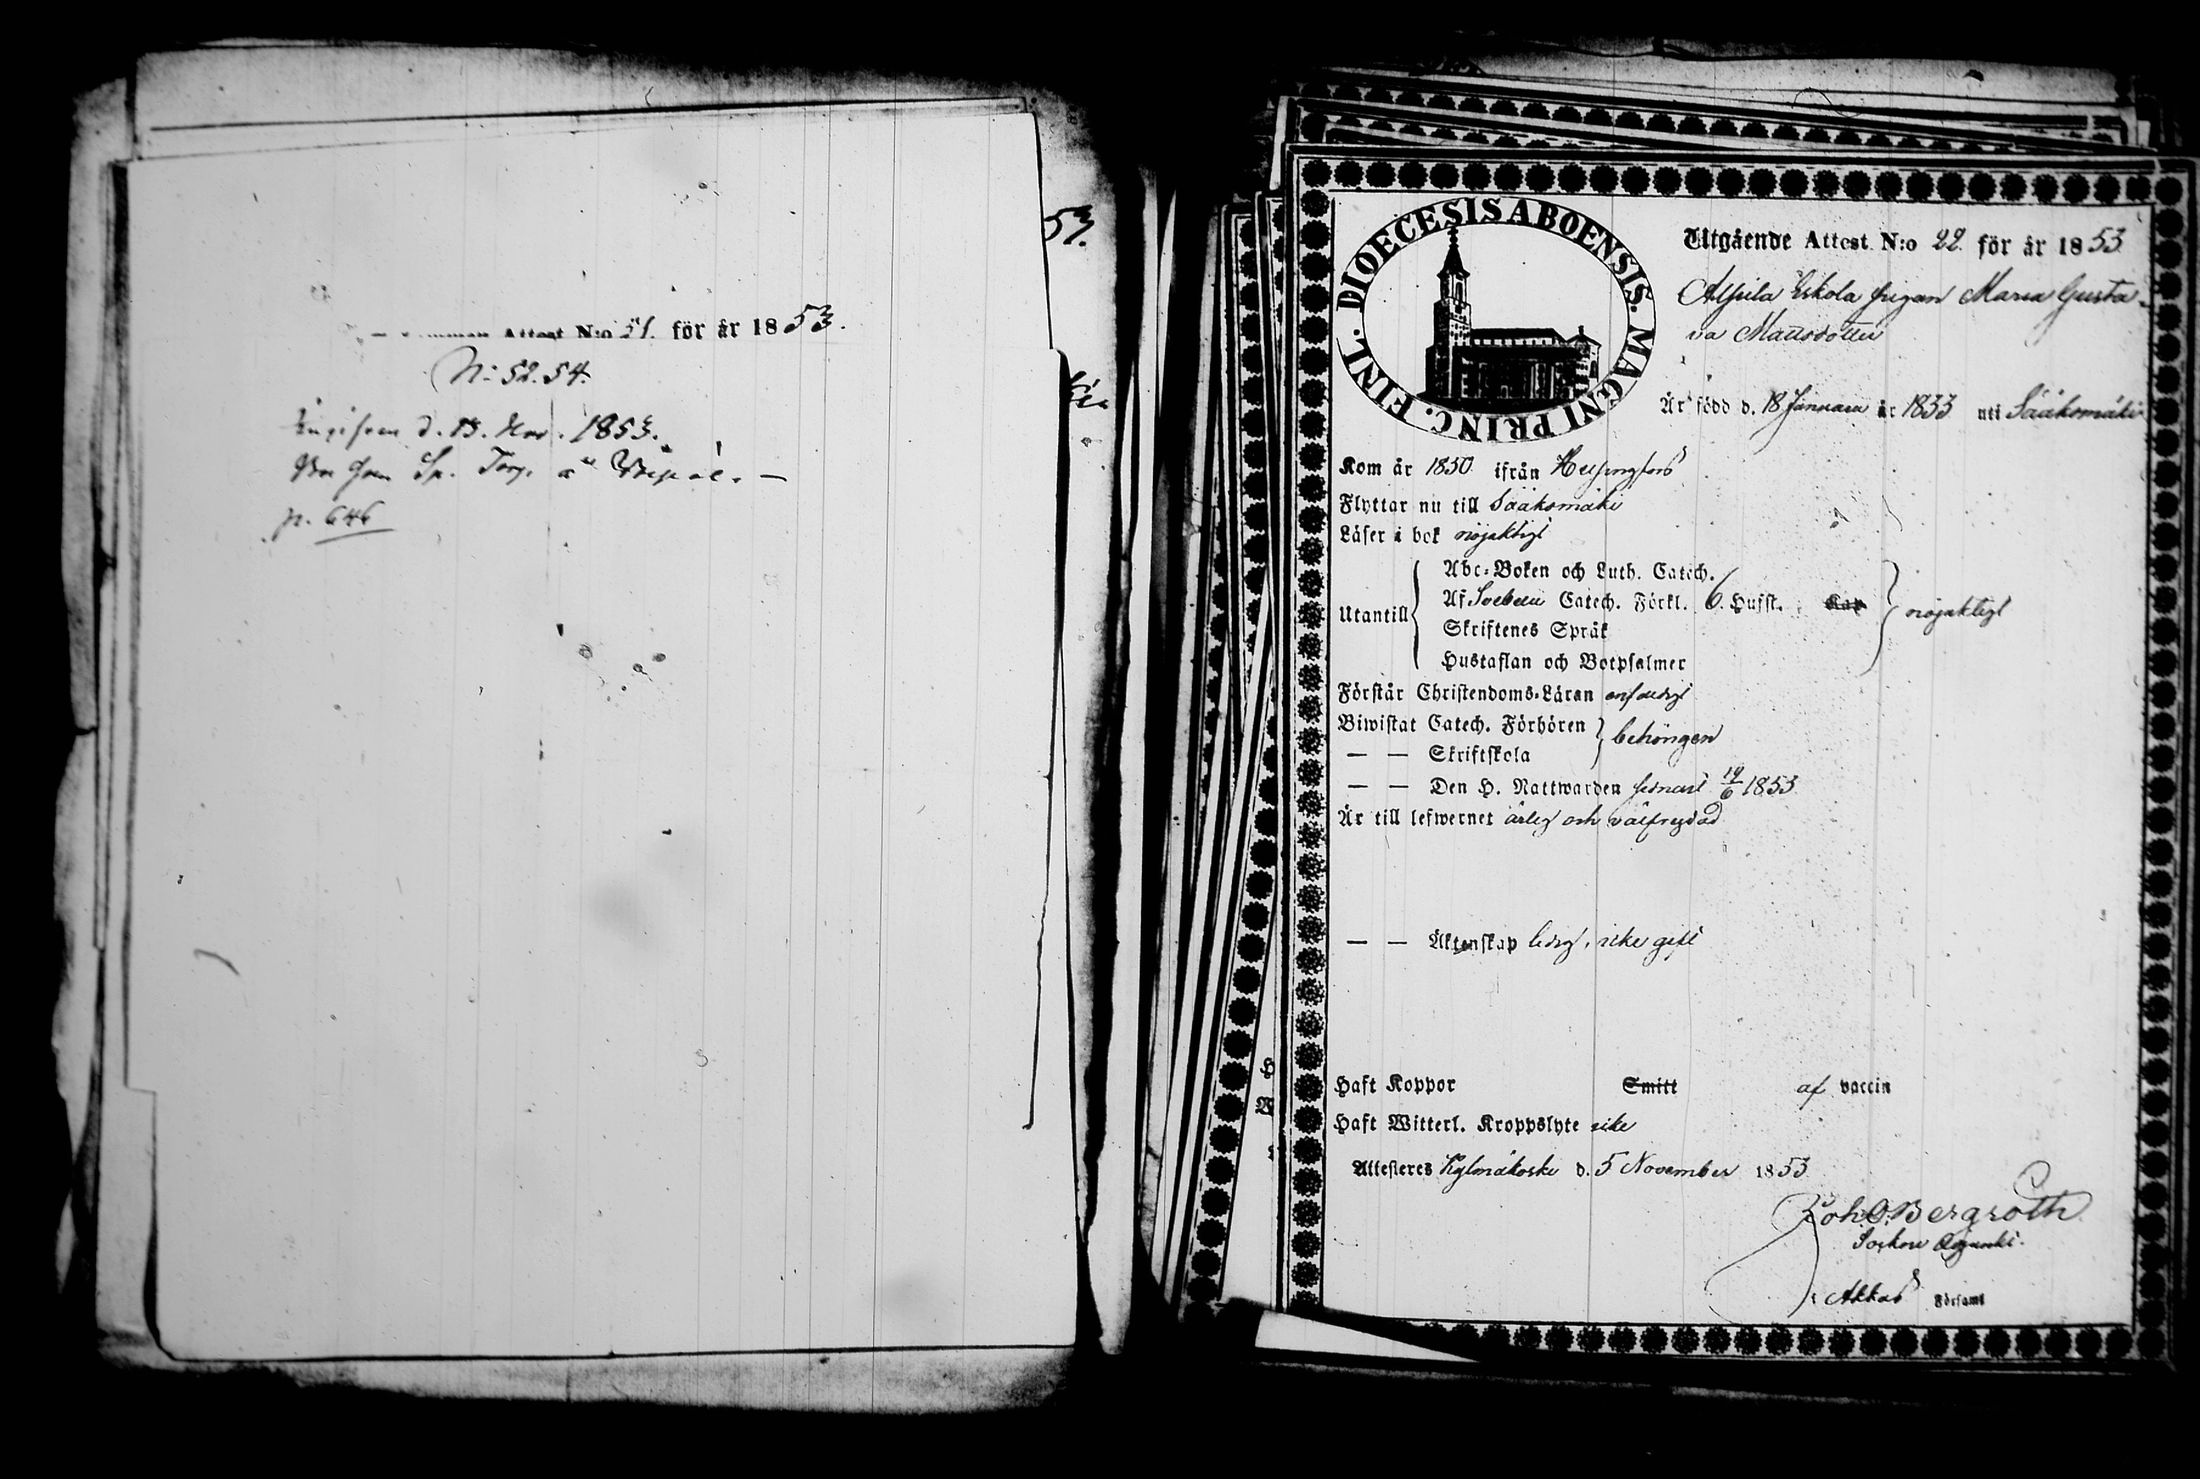 Attest N:o 51. för år 1853.
N: 52. 54.
d. 13. Nov. 1853.
p. 646
53.
DIOECESIS ABOENSIS. MAGNI PRINC. FINL.
Utgående Attest N:o 22 för år 1853
Eskola pigan Maria Gusta-
va Mattsdotter
Är född d. 18 Januari år 1833 uti Sääksmäki
Kom år 1850 ifrån Helsingfors
Flyttar nu till Sääksmäki
Läser i bok nöjaktigt
Abc-Boken och Luth. Catech.
Utantill Af Svebelii Catech. Förkl. 6. Hufst. Kap nöjaktigt
Skriftenes Språk
Hustaflan och Botpsalmer
Förstår Christendoms-Läran enfaldigt
Biwistat Catech. Förhören behörigen
— — Skriftskola
— — Den H. Nattwarden senast 19/6 1853
Är till lefwernet ärlig och välfrejdad
— — Äktenskap ledig, icke gift
Haft Koppor Smitt af vaccin
Haft Witterl. Kroppslyte icke
Attesteras Kylmäkoski d. 5 November 1853
Joh. O. Bergroth
Sockne Adjunkt.
i Akkas Församl